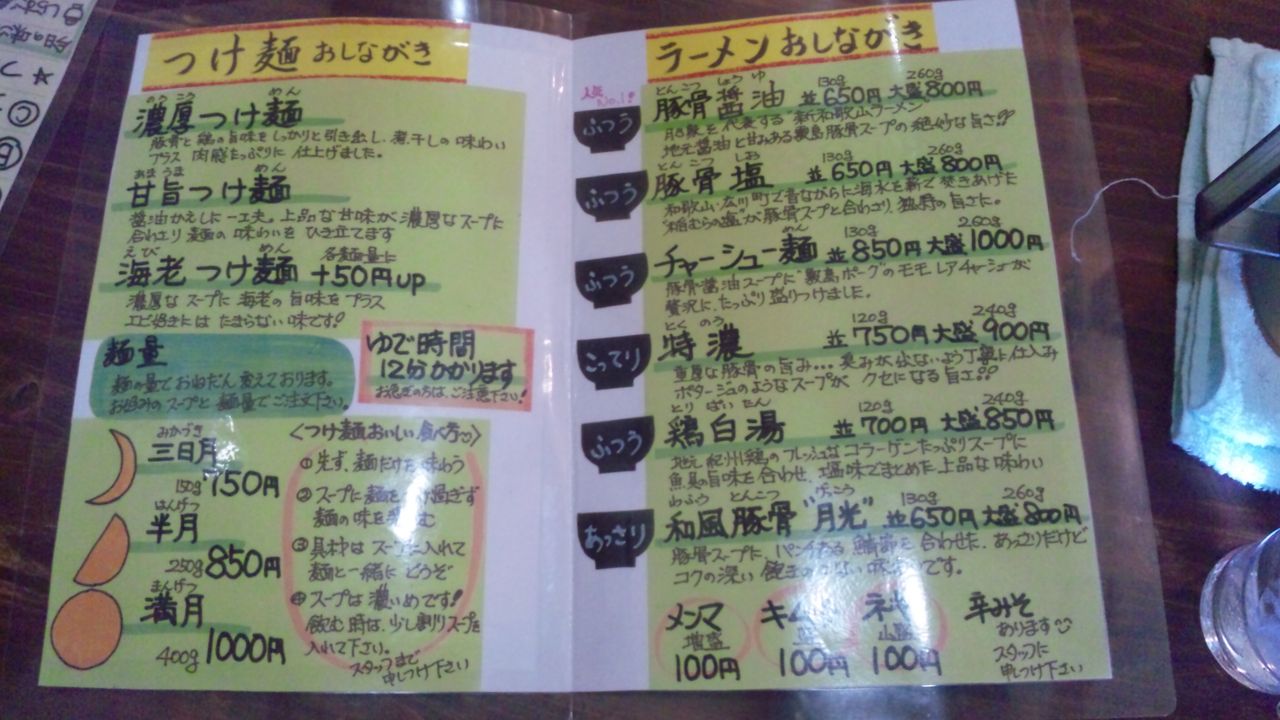 つけ麺 おしながき
のうこう めん
濃厚つけ麺
豚骨と鶏の旨味をしっかりと引き出し、煮干しの味わい
プラス 肉感たっぷりに 仕上げました。
あまうま めん
甘旨つけ麺
醤油かえしに一工夫。上品な甘味が濃厚なスープに
合わさり麺の味わいを ひき立てます
えび めん 各麺量に
海老つけ麺 +50円up
濃厚なスープに海老の旨味をプラス
エビ好きには たまらない味です!
麺量
麺の量でおねだん変えております。
お好みのスープと麺量でご注文下さい。
ゆで時間
12分かかります
お急ぎの方は、ご注意下さい!
みかづき
三日月
150g 750円
はんげつ
半月
250g 850円
まんげつ
満月
400g 1000円
<つけ麺おいしい食べ方>
①先ず、麺だけを味わう
②スープに麺を
過ぎず
麺の味を
む
③具材は スープに入れて
麺と一緒に どうぞ
④スープは 濃いめです!
飲む時は、少し割りスープを
入れて下さい。
スタッフまで
申しつけ下さい
ラーメン おしながき
人気No.1!
ふつう
とんこつ しょうゆ 130g 260g
豚骨醤油 並650円 大盛800円
を代表する 新和歌山ラーメン
地元醤油と甘みある 豚骨スープの絶妙な旨さ!!
ふつう
とんこつ しお 130g 260g
豚骨塩 並650円 大盛800円
和歌山・広川町で昔ながらに海水を薪で焚きあげた
稲むらの塩が豚骨スープと合わさり、独特の旨さに。
ふつう
めん 130g 260g
チャーシュー麺 並850円 大盛1000円
豚骨醤油スープに ポークのモモ レアチャーシュが
贅沢に、たっぷり盛りつけました。
こってり
とくのう 120g 240g
特濃 並750円 大盛900円
重厚な豚骨の旨み… 臭みが出ないよう丁寧に仕込み
ポタージュのようなスープが クセになる旨さ!!
ふつう
とりぱいたん 120g 240g
鶏白湯 並700円 大盛850円
地元 紀州鶏のフレッシュな コラーゲンたっぷりスープに
魚貝の旨味を合わせ、塩味でまとめた上品な味わい
あっさり
わふう とんこつ げっこう 130g 260g
和風豚骨"月光" 並650円 大盛800円
豚骨スープに、パンチある 鯖節を合わせた、あっさりだけど
コクの深い 味 です。
メンマ
増盛
100円
キム
100円
ネギ
100円
辛みそ
あります
スタッフに
申し付け下さい